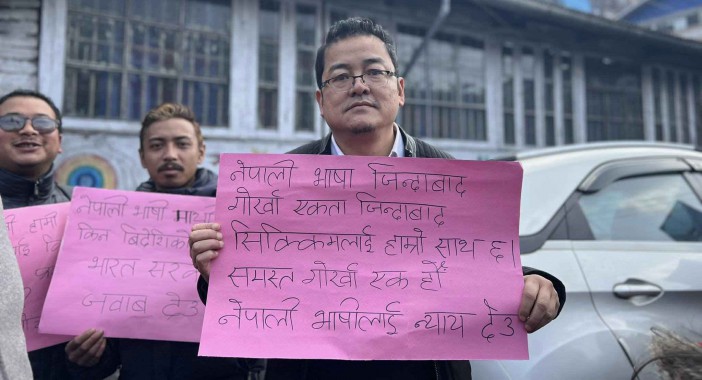 नेपाली भाषा जिन्दाबाद
गोर्खा एकता जिन्दाबाद
सिक्किमलाई हाम्रो साथ छ।
समस्त गोर्खा एक हौं
नेपाली भाषीलाई न्याय देउ
नेपाली भाषी माथि
किन बिदेशीको
भारत सरका
जवाब देउ
हाम्रो